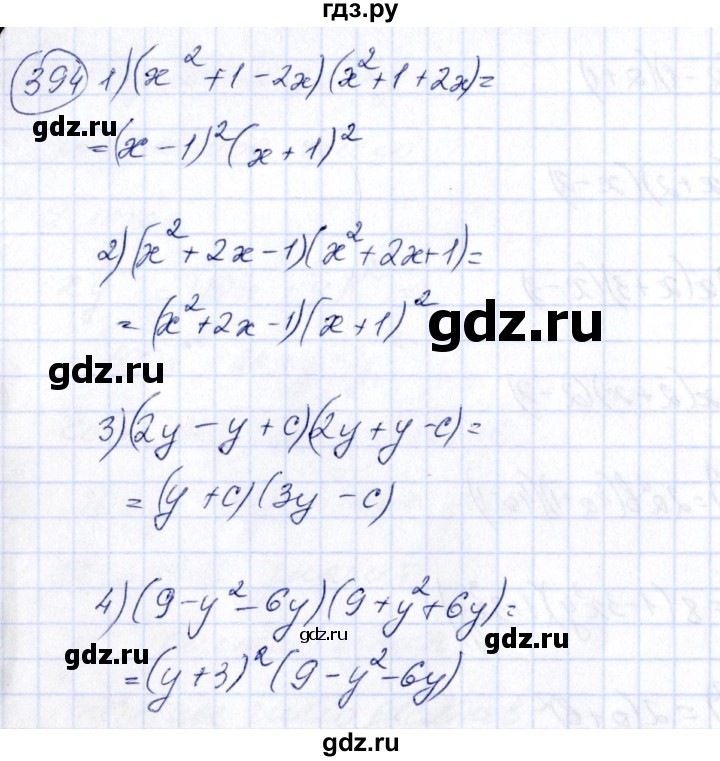 гдз.ру
394 1) (x² + 1 - 2x)(x² + 1 + 2x) =
= (x - 1)² (x + 1)²
gdz.ru
gdz.ru
2) (x² + 2x - 1)(x² + 2x + 1) =
= (x² + 2x - 1)(x + 1)²
gdz.ru
gdz.ru
3) (2y - y + c)(2y + y - c) =
= (y + c)(3y - c)
gdz.ru
gdz.ru
4) (9 - y² - 6y)(9 + y² + 6y) =
gdz.ru
= (y + 3)² (9 - y² - 6y)
gdz.ru
gdz.ru
gdz.ru